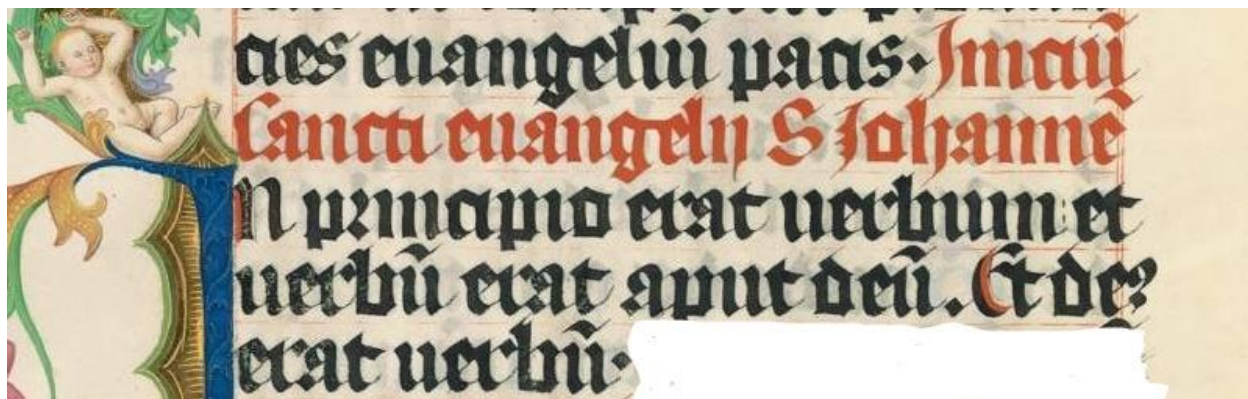 cies euangeliū pacis. Iniciū
sancti euangelij S Johannē
IN principio erat uerbum et
uerbū erat aput deū. Et deꝰ
erat uerbū.